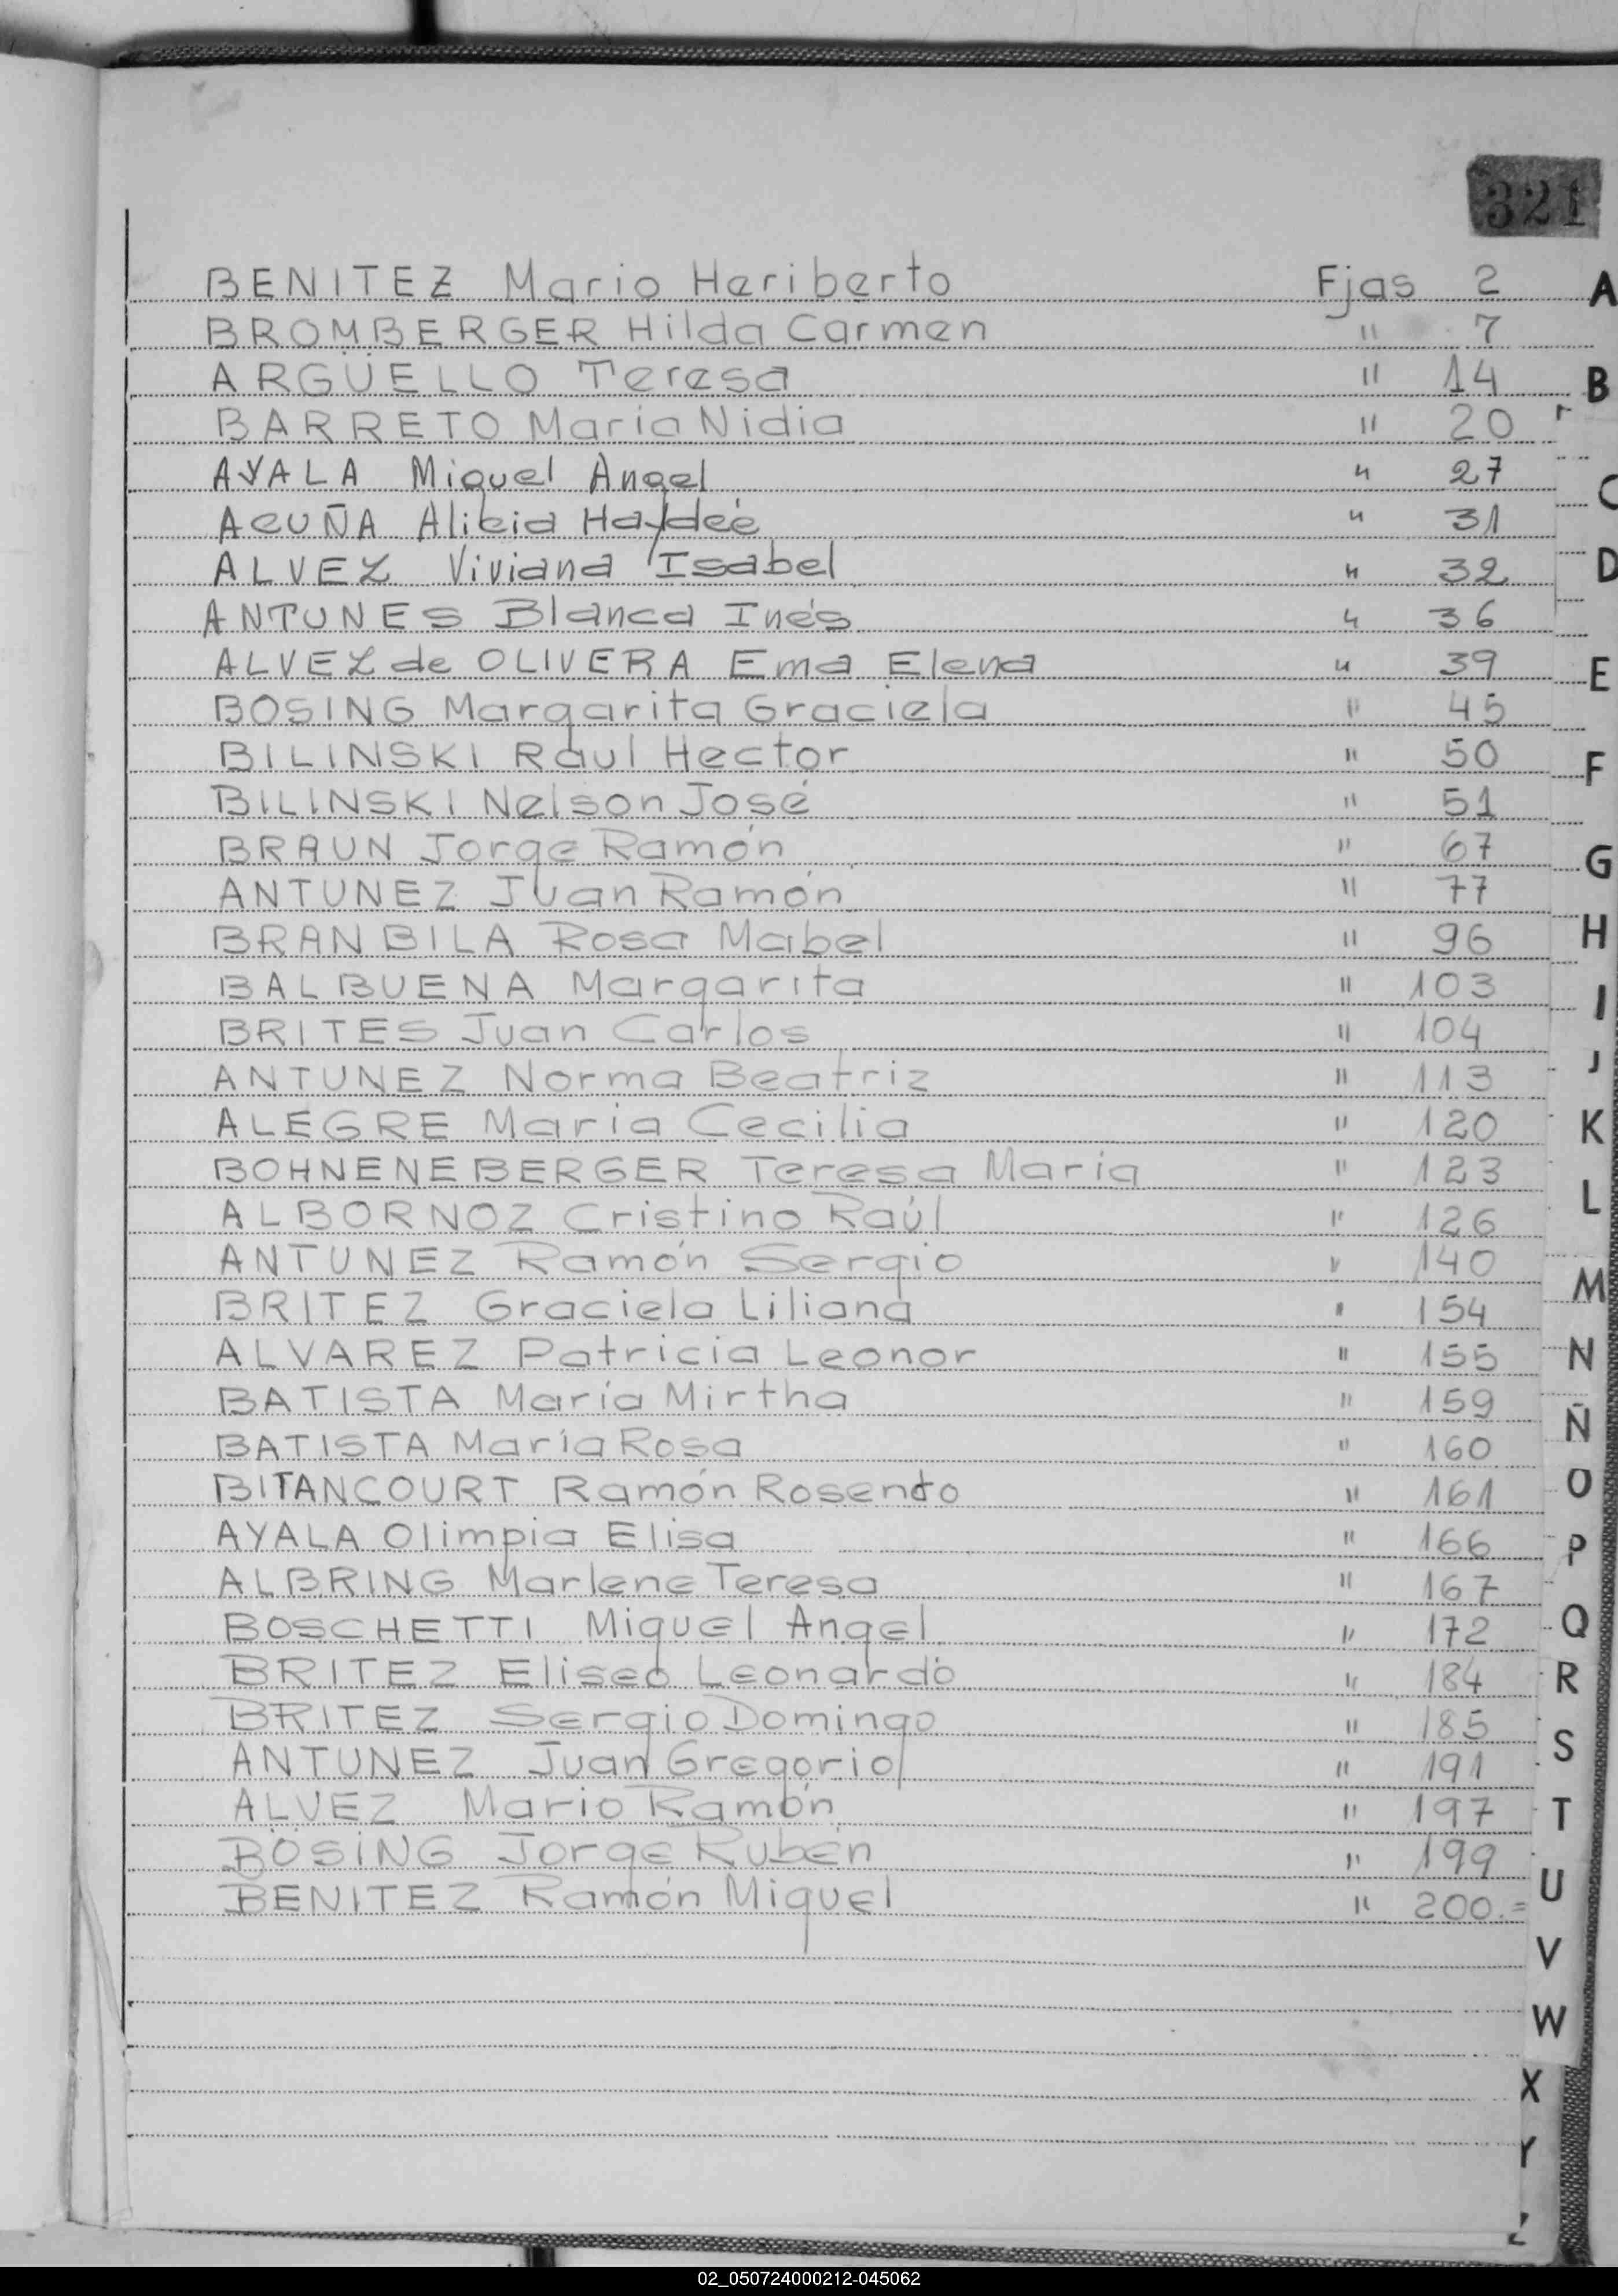 321
BENITEZ Mario Heriberto Fjas 2
BROMBERGER Hilda Carmen " 7
ARGÜELLO Teresa " 14
BARRETO Maria Nidia " 20
AYALA Miguel Angel " 27
ACUÑA Alicia Haydée " 31
ALVEZ Viviana Isabel " 32
ANTUNES Blanca Inés " 36
ALVEZ de OLIVERA Ema Elena " 39
BOSING Margarita Graciela " 45
BILINSKI Raul Hector " 50
BILINSKI Nelson José " 51
BRAUN Jorge Ramón " 67
ANTUNEZ Juan Ramón " 77
BRANBILA Rosa Mabel " 96
BALBUENA Margarita " 103
BRITES Juan Carlos " 104
ANTUNEZ Norma Beatriz " 113
ALEGRE Maria Cecilia " 120
BOHNENEBERGER Teresa Maria " 123
ALBORNOZ Cristino Raúl " 126
ANTUNEZ Ramón Sergio " 140
BRITEZ Graciela Liliana " 154
ALVAREZ Patricia Leonor " 155
BATISTA María Mirtha " 159
BATISTA María Rosa " 160
BITANCOURT Ramón Rosendo " 161
AYALA Olimpia Elisa " 166
ALBRING Marlene Teresa " 167
BOSCHETTI Miguel Angel " 172
BRITEZ Eliseo Leonardo " 184
BRITEZ Sergio Domingo " 185
ANTUNEZ Juan Gregorio " 191
ALVEZ Mario Ramón " 197
BÖSING Jorge Rubén " 199
BENITEZ Ramón Miguel " 200.=
A
B
C
D
E
F
G
H
I
J
K
L
M
N
Ñ
O
P
Q
R
S
T
U
V
W
X
Y
Z
02_050724000212-045062